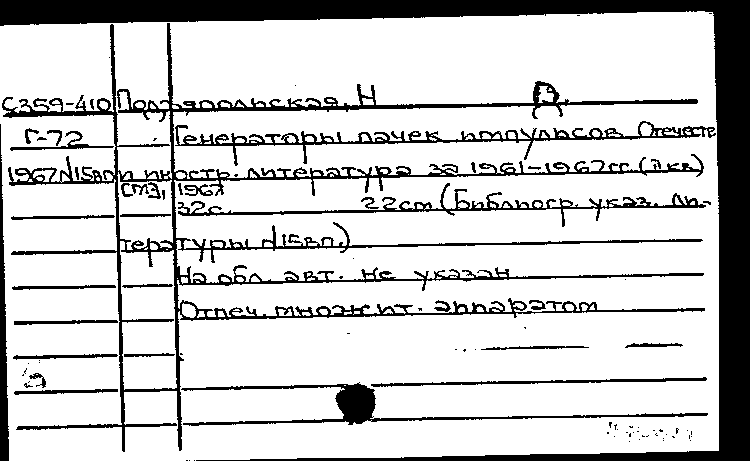 С359-410 Подъяпольская, Н
Г-72 Генераторы пачек импульсов. Отечеств
1967 N15вп и иностр. литература за 1961-1967гг. (II кв.)
1967
32с. 22см (Библиогр. указ. ли-
тературы N15вп.)
На обл. авт. не указан
Отпеч. множит. аппаратом